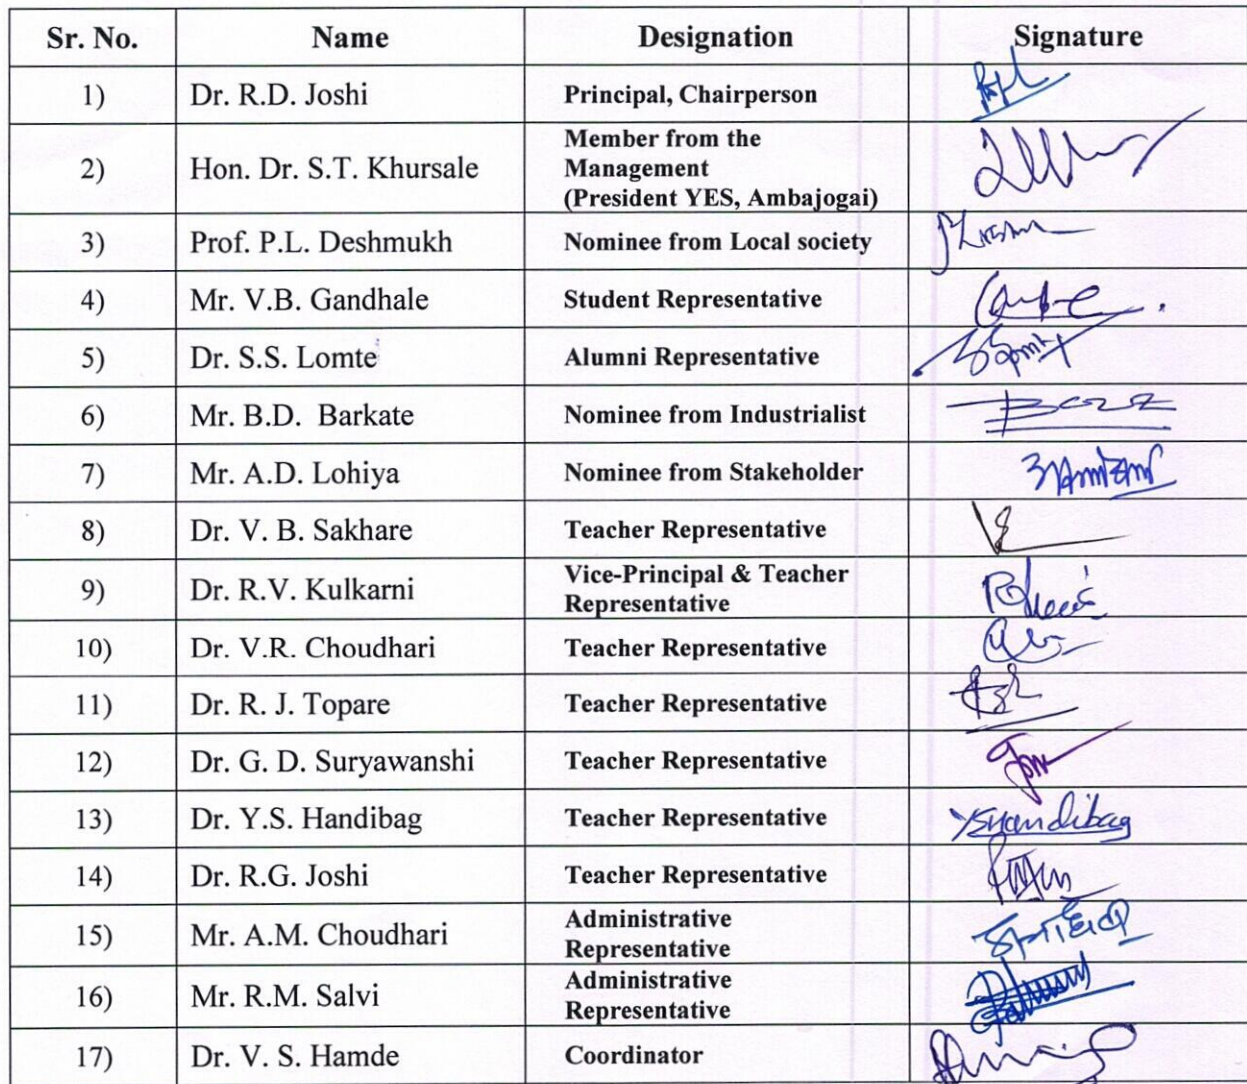 Sr. No. Name Designation Signature
1) Dr. R.D. Joshi Principal, Chairperson
Member from the
2) Hon. Dr. S.T. Khursale Management
(President YES, Ambajogai)
3) Prof. P.L. Deshmukh Nominee from Local society
4) Mr. V.B. Gandhale Student Representative
5) Dr. S.S. Lomte Alumni Representative
6) Mr. B.D. Barkate Nominee from Industrialist
7) Mr. A.D. Lohiya Nominee from Stakeholder
8) Dr. V. B. Sakhare Teacher Representative
9) Dr. R.V. Kulkarni Vice-Principal & Teacher
Representative
10) Dr. V.R. Choudhari Teacher Representative
11) Dr. R. J. Topare Teacher Representative
12) Dr. G. D. Suryawanshi Teacher Representative
13) Dr. Y.S. Handibag Teacher Representative YSHandibag
14) Dr. R.G. Joshi Teacher Representative
15) Mr. A.M. Choudhari Administrative
Representative
16) Mr. R.M. Salvi Administrative
Representative
17) Dr. V. S. Hamde Coordinator